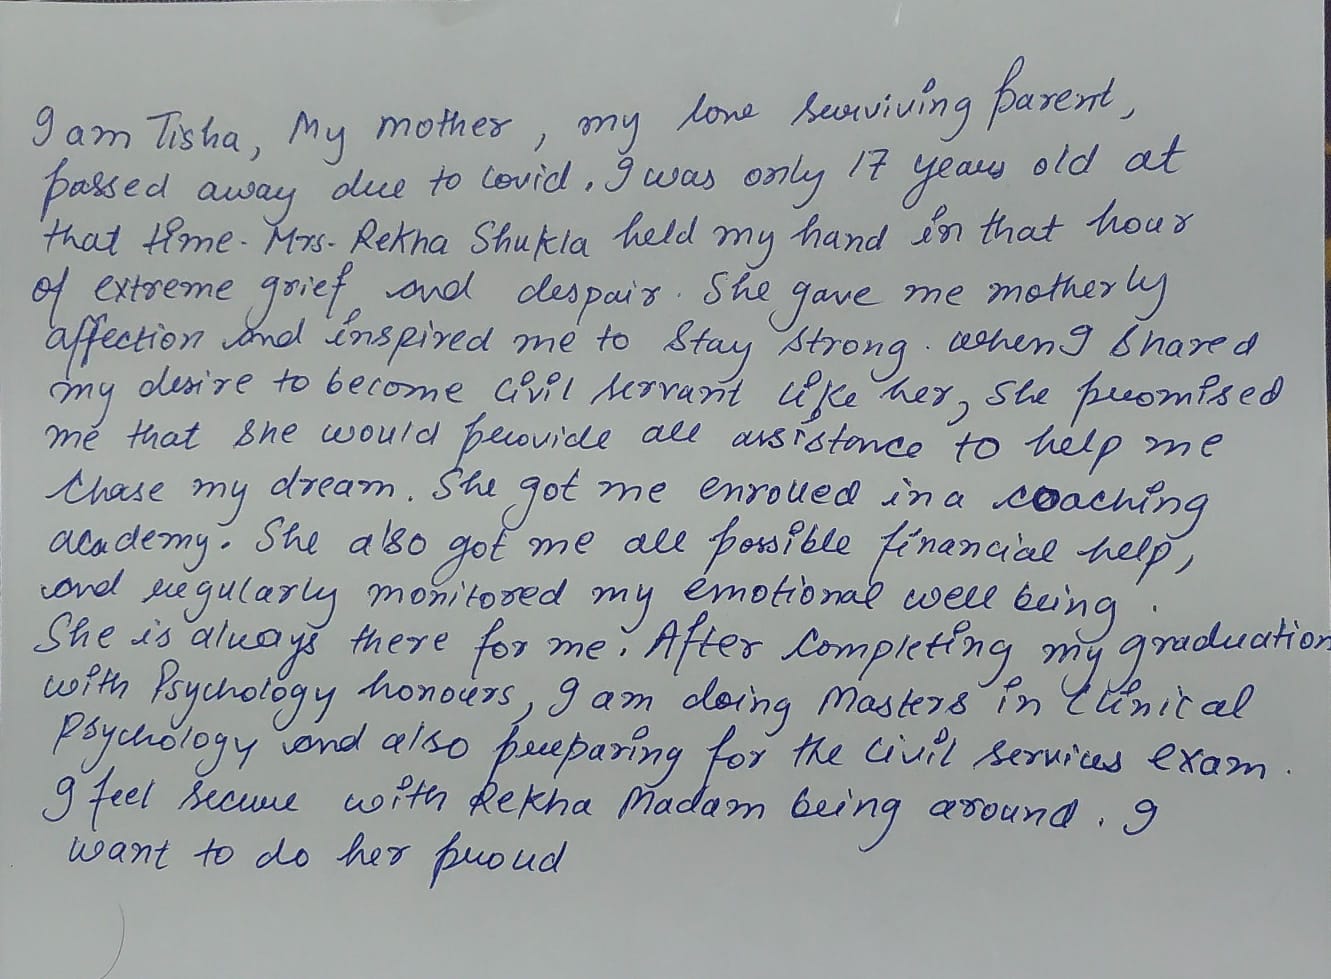 I am Tisha, My mother, my lone surviving parent,
passed away due to Covid. I was only 17 years old at
that time. Mrs. Rekha Shukla held my hand in that hour
of extreme grief and despair. She gave me motherly
affection and inspired me to stay strong. when I shared
my desire to become civil servant like her, she promised
me that she would provide all assistance to help me
chase my dream. She got me enrolled in a coaching
academy. She also got me all possible financial help,
and regularly monitored my emotional well being.
She is always there for me. After completing my graduation
with Psychology honours, I am doing Masters in Clinical
Psychology and also preparing for the civil services exam.
I feel secure with Rekha Madam being around. I
want to do her proud